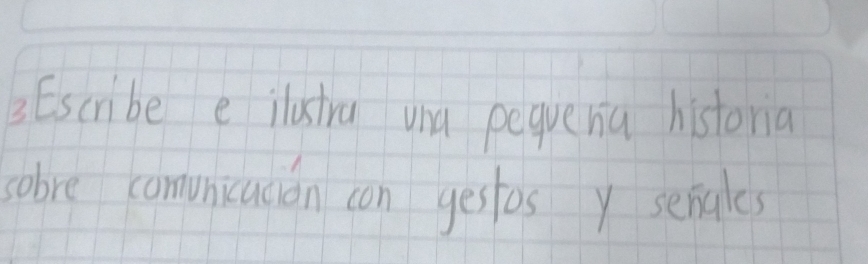 3 Escribe e ilustra una pequeña historia
sobre comunicación con gestos y señales